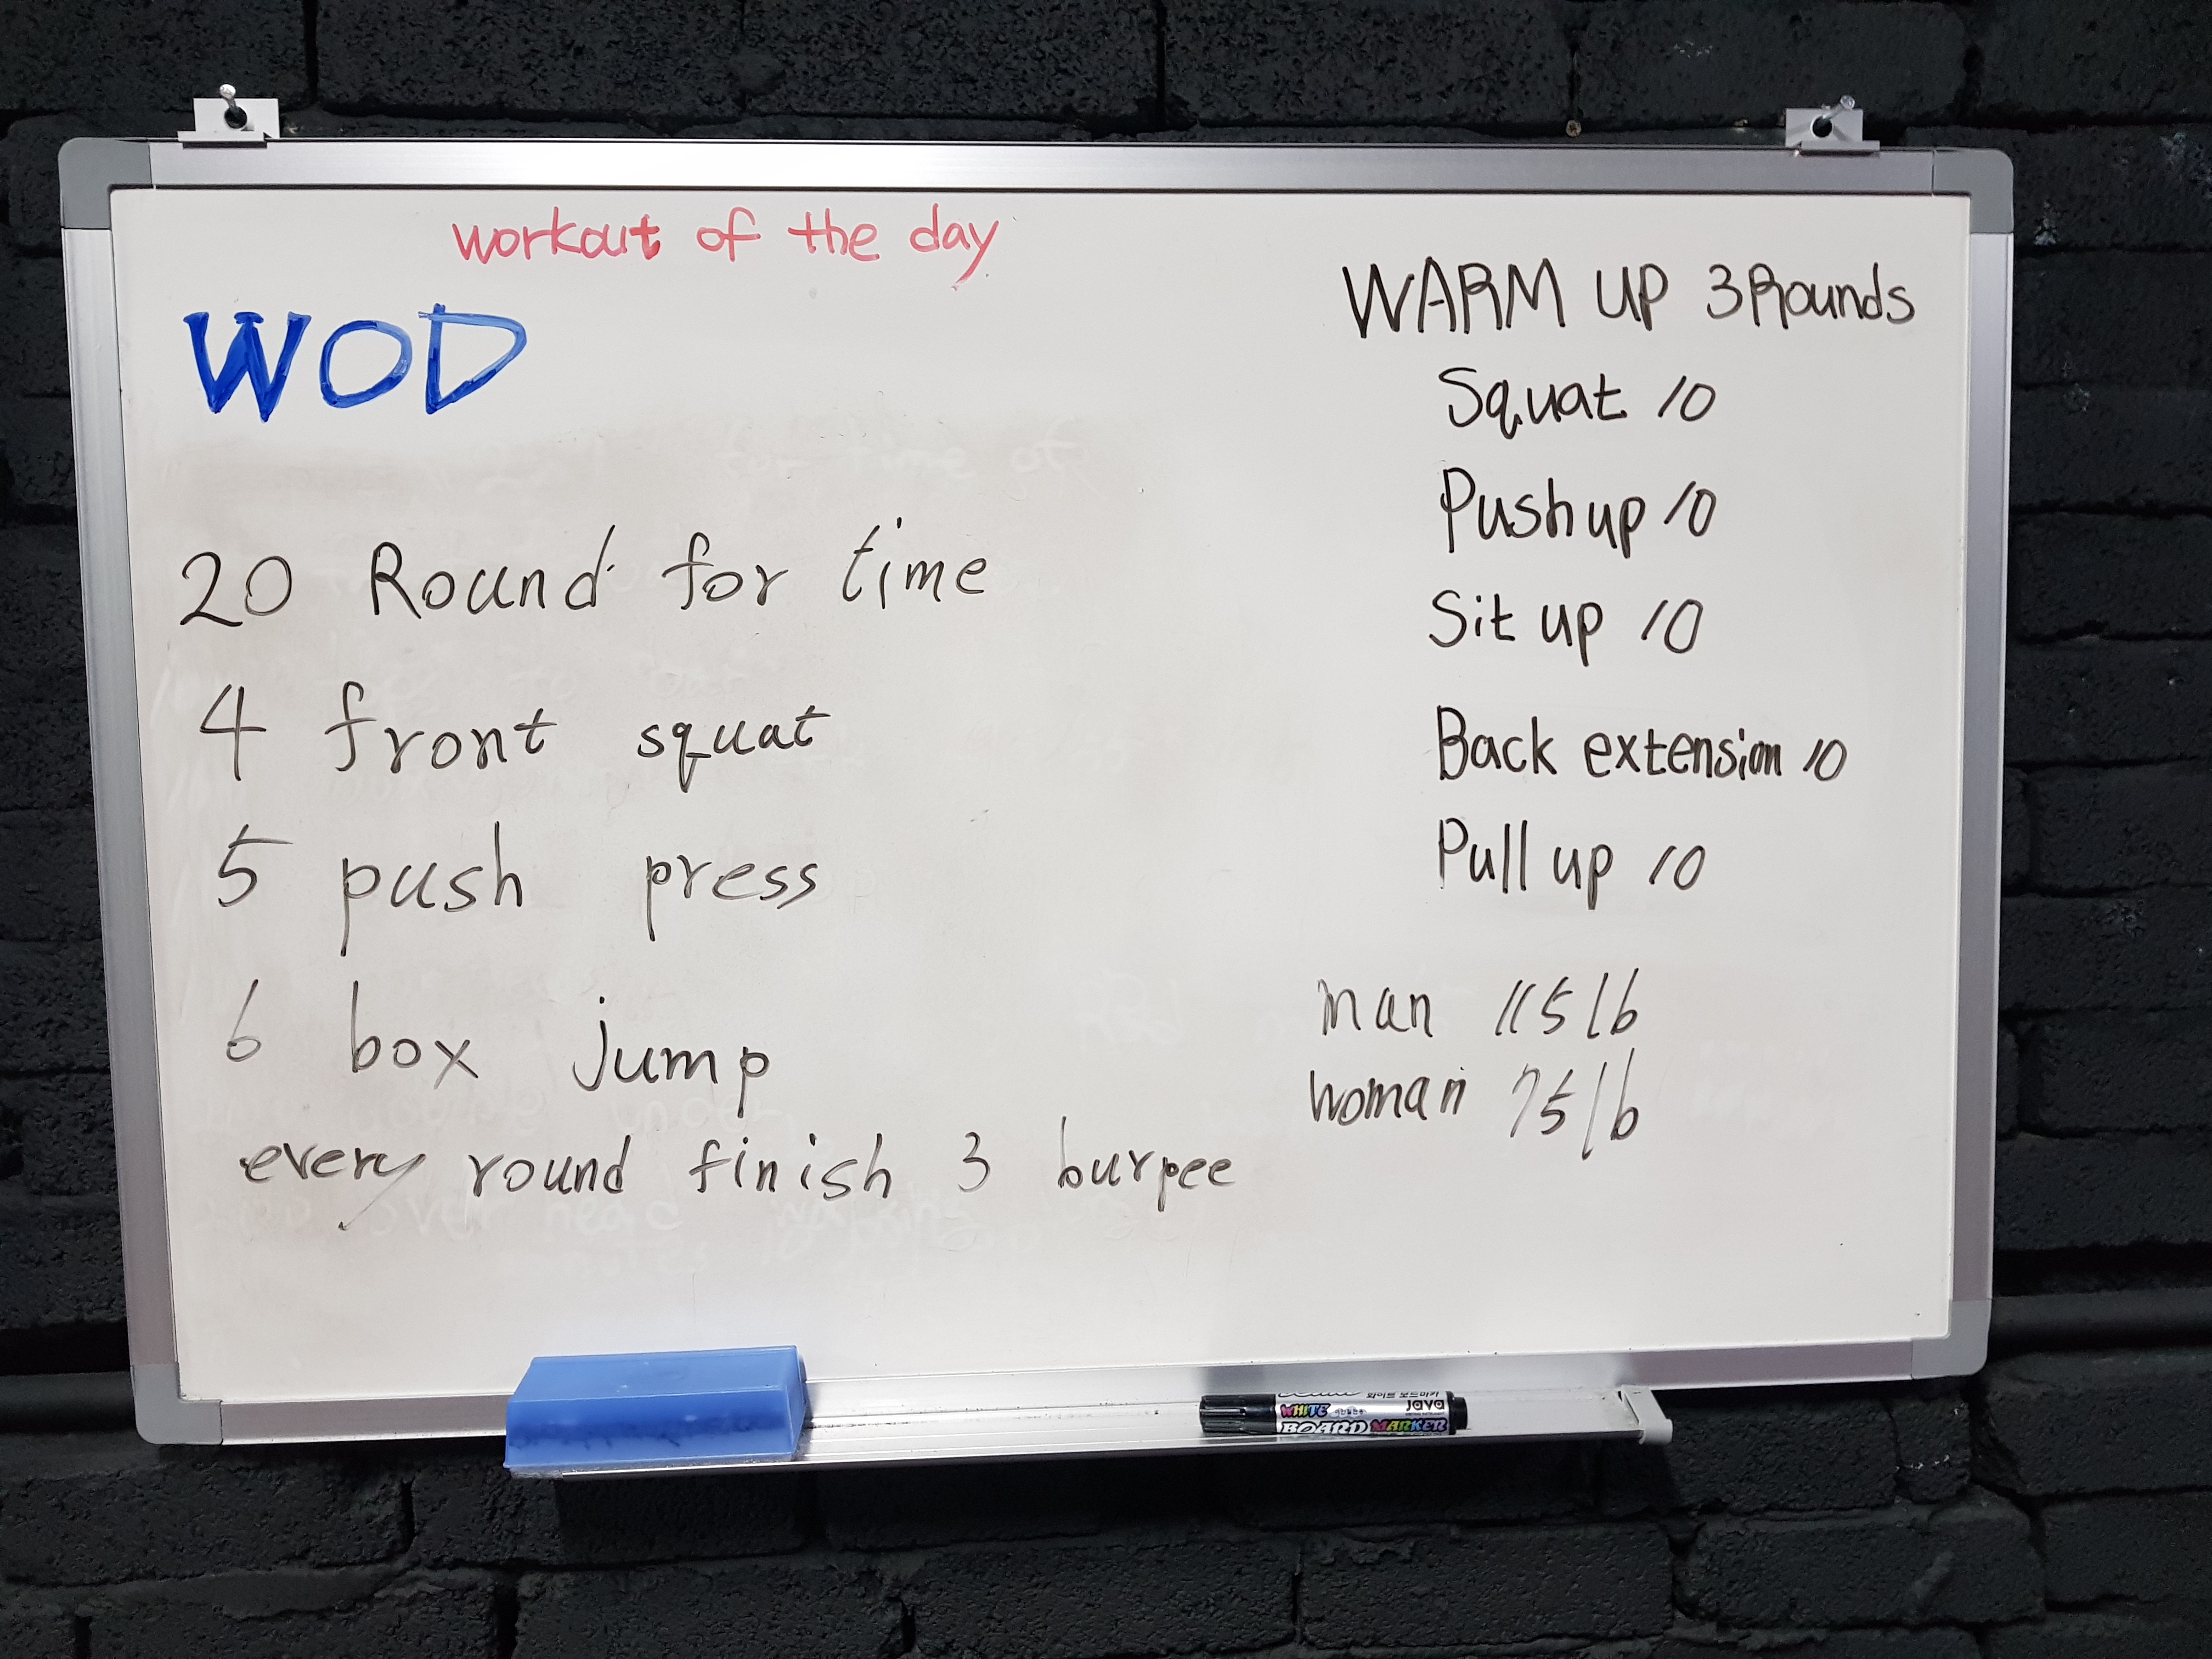 workout of the day
WOD
20 Round for time
4 front squat
5 push press
6 box jump
every round finish 3 burpee
WARM UP 3Rounds
Squat 10
Push up 10
Sit up 10
Back extension 10
Pull up 10
man 115 lb
woman 75 lb
화이트 보드마카
WHITE
java
BOARD MARKER